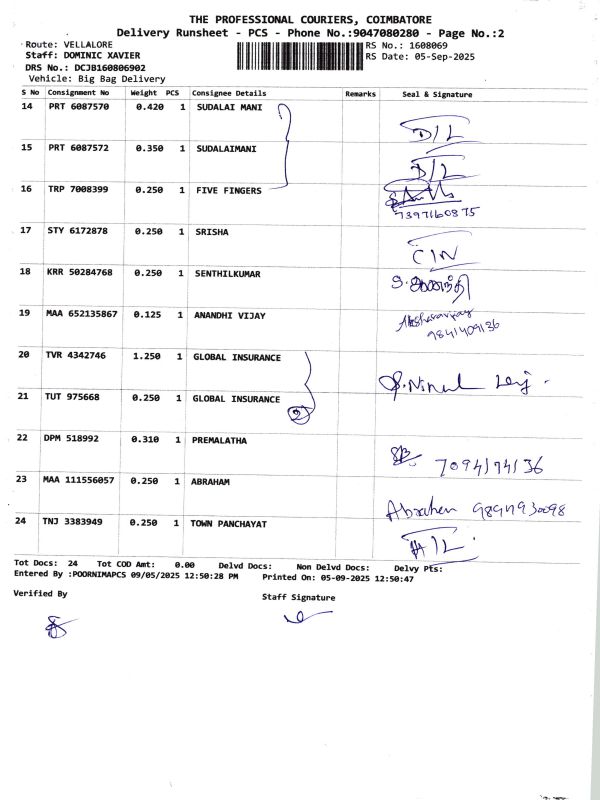 THE PROFESSIONAL COURIERS, COIMBATORE
Delivery Runsheet - PCS - Phone No.:9047080280 - Page No.:2
Route: VELLALORE
Staff: DOMINIC XAVIER
DRS No.: DCJB160806902
Vehicle: Big Bag Delivery
RS No.: 1608069
RS Date: 05-Sep-2025
S No Consignment No Weight PCS Consignee Details Remarks Seal & Signature
14 PRT 6087570 0.420 1 SUDALAI MANI D/L
15 PRT 6087572 0.350 1 SUDALAIMANI D/L
16 TRP 7008399 0.250 1 FIVE FINGERS
7397160875
17 STY 6172878 0.250 1 SRISHA C/N
18 KRR 50284768 0.250 1 SENTHILKUMAR
19 MAA 652135867 0.125 1 ANANDHI VIJAY
9841409136
20 TVR 4342746 1.250 1 GLOBAL INSURANCE
21 TUT 975668 0.250 1 GLOBAL INSURANCE
2
22 DPM 518992 0.310 1 PREMALATHA
7094174136
23 MAA 111556057 0.250 1 ABRAHAM
Abraham 9894930098
24 TNJ 3383949 0.250 1 TOWN PANCHAYAT
Tot Docs: 24 Tot COD Amt: 0.00 Delvd Docs: Non Delvd Docs: Delvy Pts:
Entered By :POORNIMAPCS 09/05/2025 12:50:28 PM Printed On: 05-09-2025 12:50:47
Verified By
Staff Signature